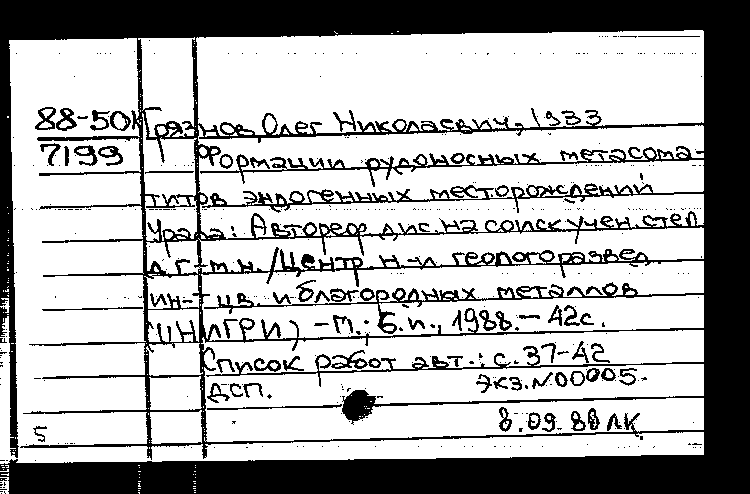 88-50к Грязнов, Олег Николаевич, 1933
7199 Формации рудоносных метасома-
титов эндогенных месторождений
Урала: Автореф. дис. на соиск. учен. степ.
д. г.-м. н. / Центр. н.-и. геологоразвед.
ин-т цв. и благородных металлов
(ЦНИГРИ). - М.: Б. и., 1988. - 42с.
Список работ авт.: с. 37-42
ДСП. Экз. N00005.
5 8.09.88 ЛК.